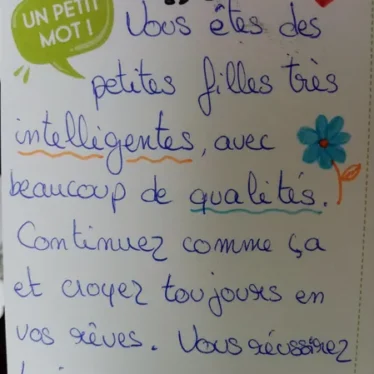 UN PETIT
MOT !
Vous êtes des
petites filles très
intelligentes, avec
beaucoup de qualités.
Continuez comme ça
et croyez toujours en
vos rêves. Vous réussirez